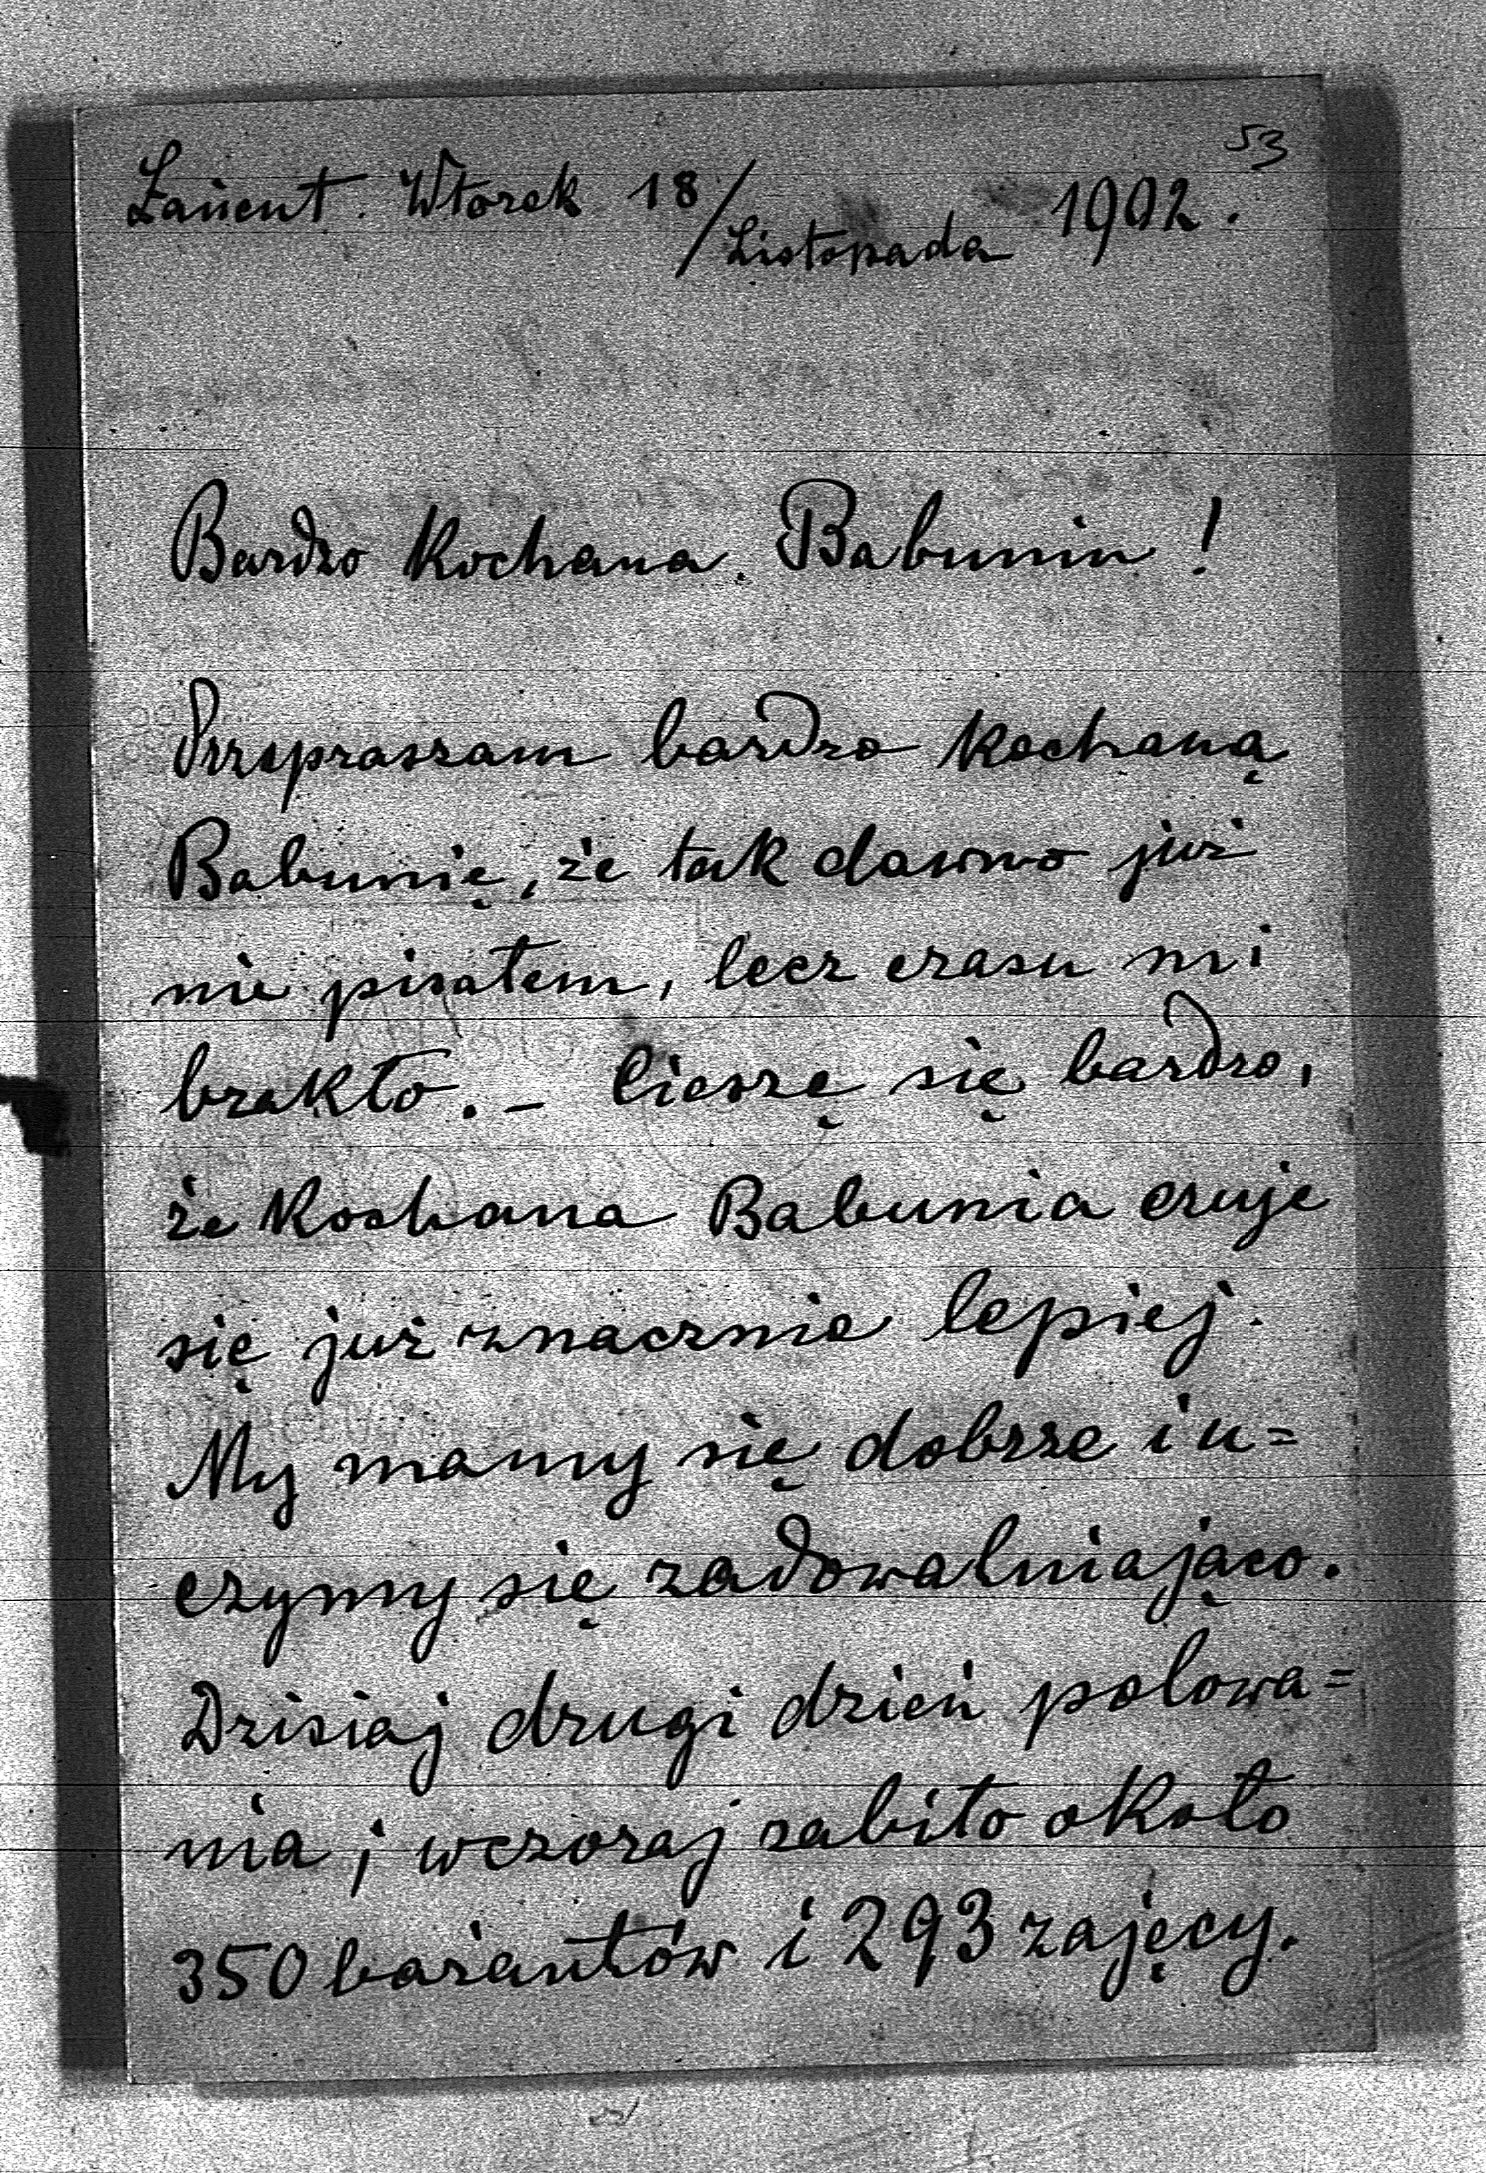 53
Łańcut. Wtorek 18/Listopada 1902.
Bardzo Kochana Babuniu!
Przepraszam bardzo Kochaną
Babunię, że tak dawno już
nie pisałem, lecz czasu mi
brakło. – Cieszę się bardzo,
że Kochana Babunia czuje
się już znacznie lepiej.
My mamy się dobrze i u=
czymy się zadowalniająco.
Dzisiaj drugi dzień polowa=
nia; wczoraj zabito około
350 bażantów i 293 zajęcy.